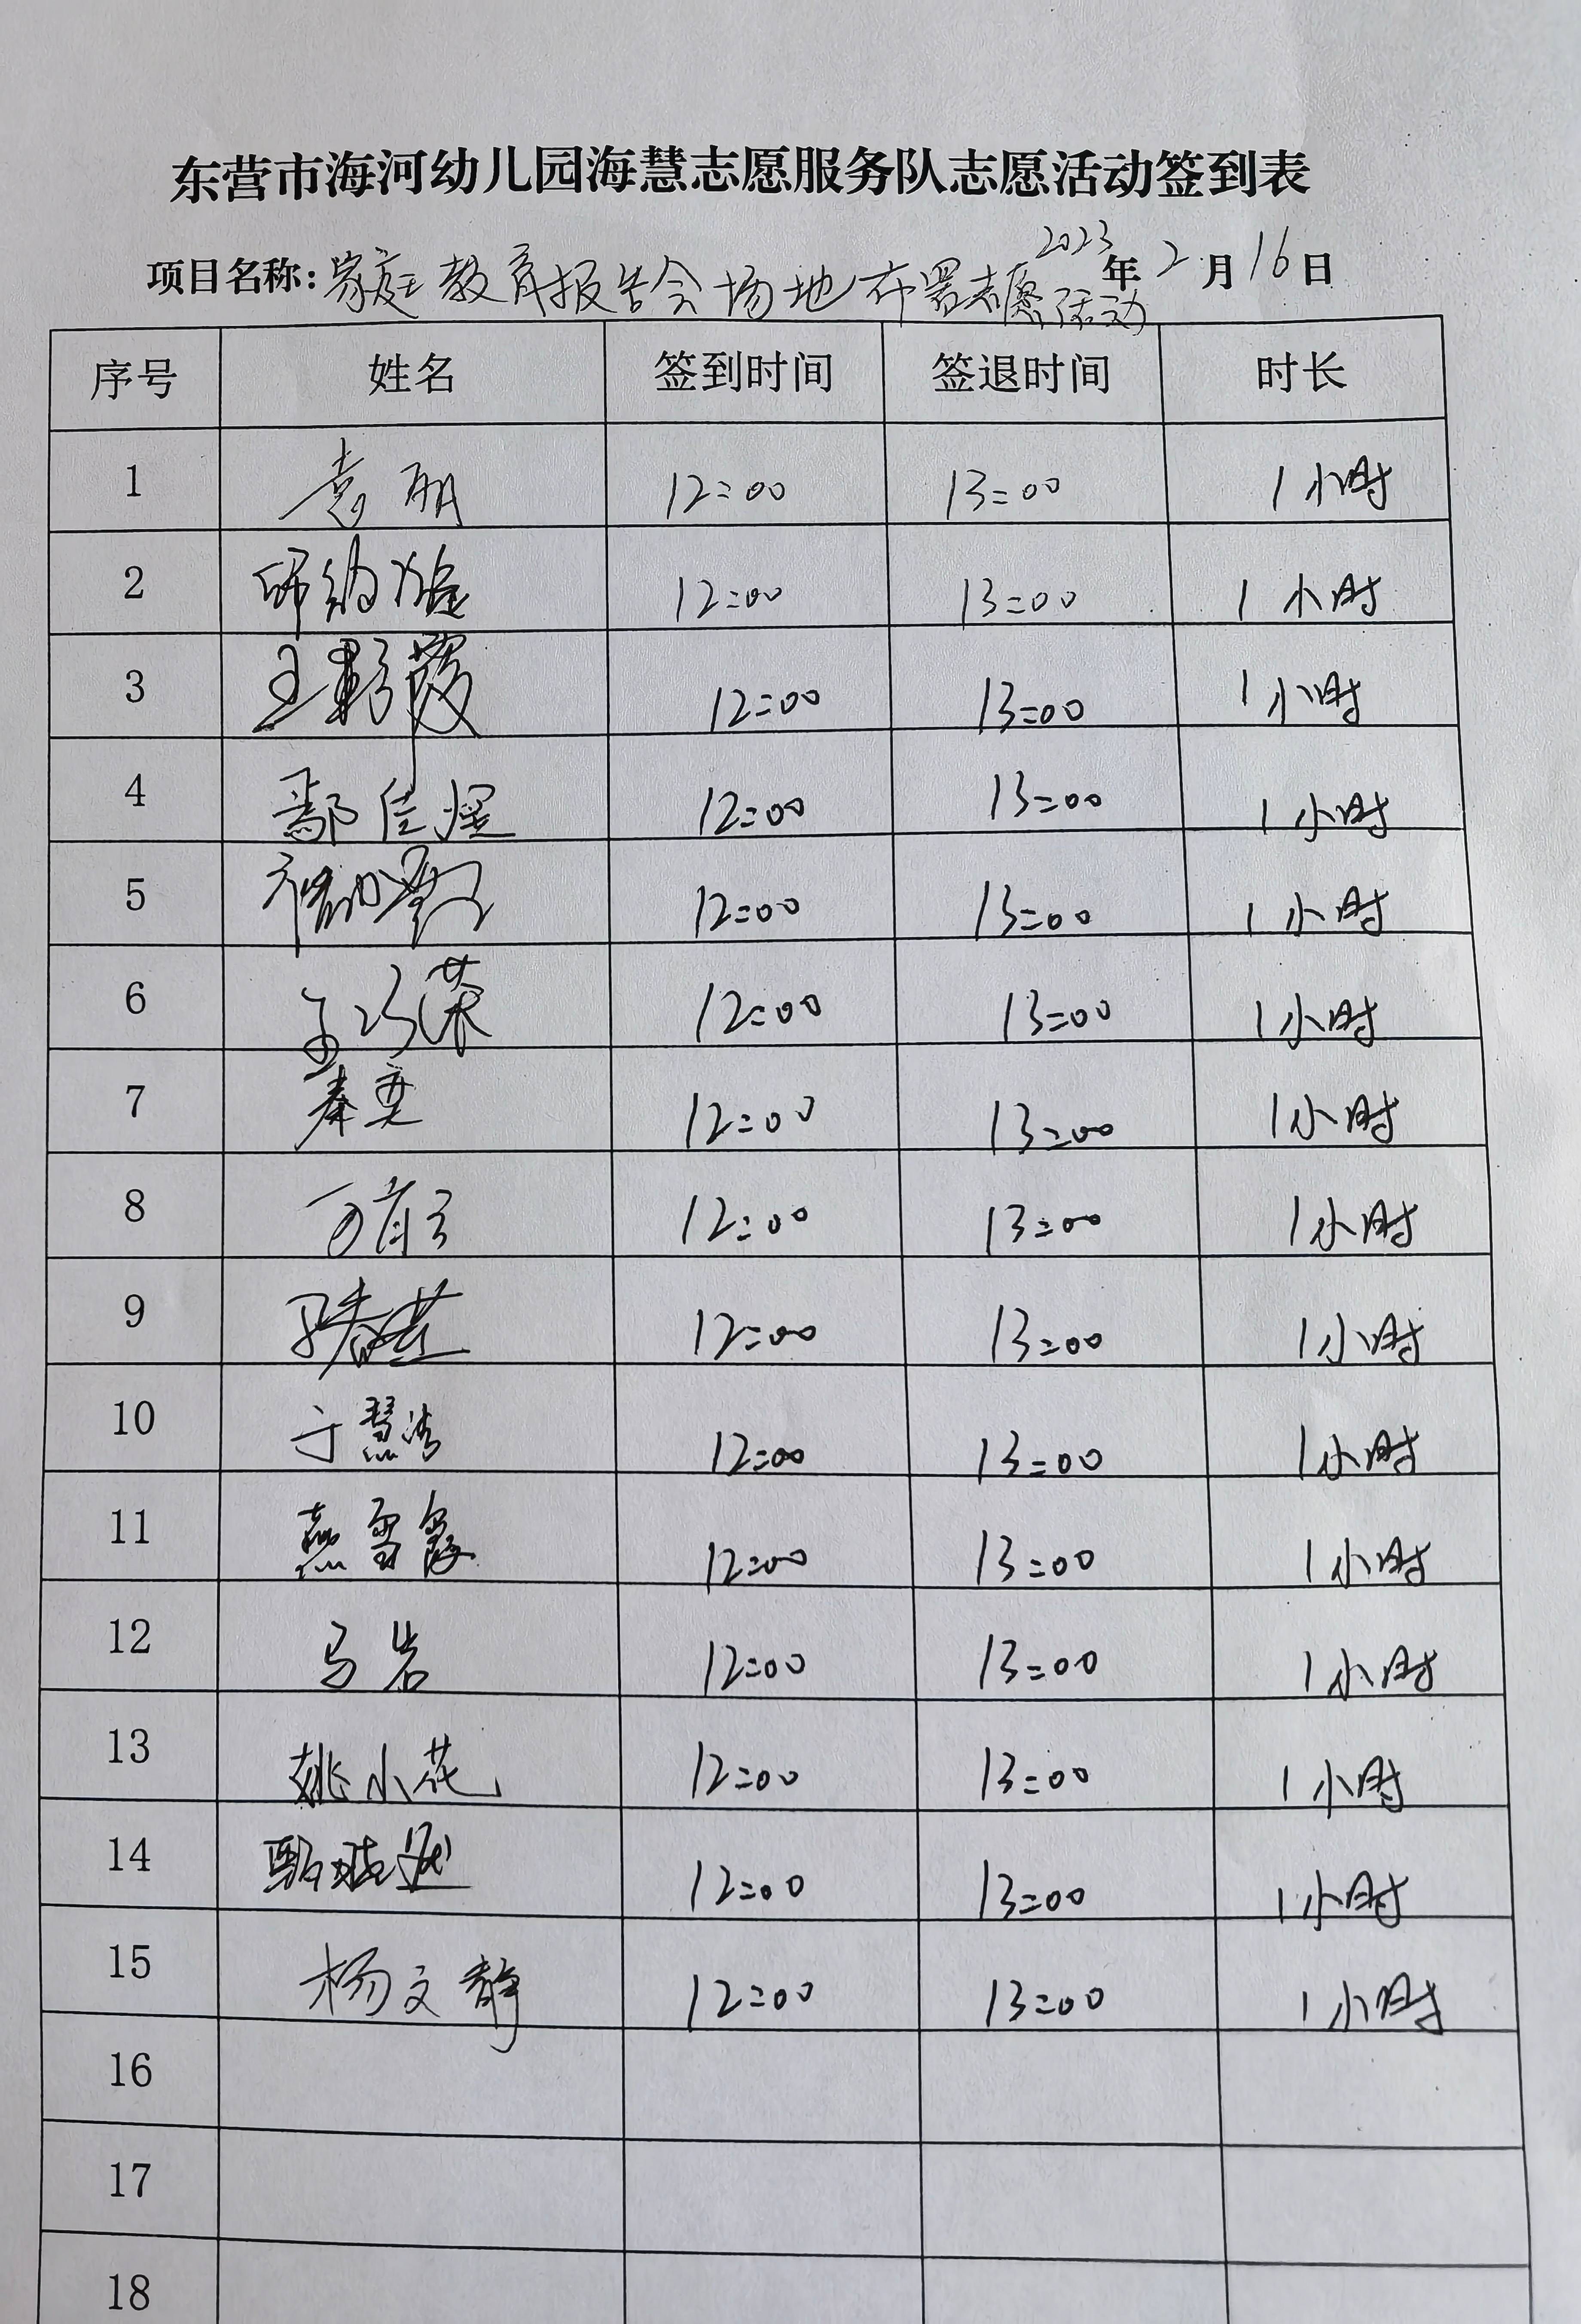 东营市海河幼儿园海慧志愿服务队志愿活动签到表
项目名称：家庭教育报告会场地布署志愿活动 2023年2月16日
序号 姓名 签到时间 签退时间 时长
1 袁丽 12:00 13:00 1小时
2 12:00 13:00 1小时
3 王彩霞 12:00 13:00 1小时
4 鄢佳煜 12:00 13:00 1小时
5 12:00 13:00 1小时
6 王巧荣 12:00 13:00 1小时
7 秦雯 12:00 13:00 1小时
8 12:00 13:00 1小时
9 马春燕 12:00 13:00 1小时
10 于慧涛 12:00 13:00 1小时
11 燕雪霞 12:00 13:00 1小时
12 马岩 12:00 13:00 1小时
13 姚小花 12:00 13:00 1小时
14 12:00 13:00 1小时
15 杨文静 12:00 13:00 1小时
16
17
18